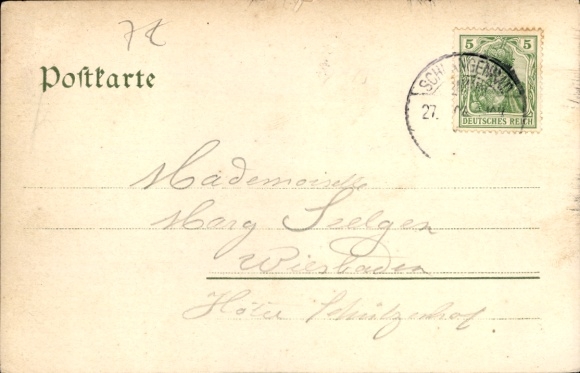 7£
5 5
Postkarte
SCHLANGENBAD
27.
DEUTSCHES REICH
Mademoiselle
Marg Seelgen
Wiesbaden
Hôtel Schützenhof